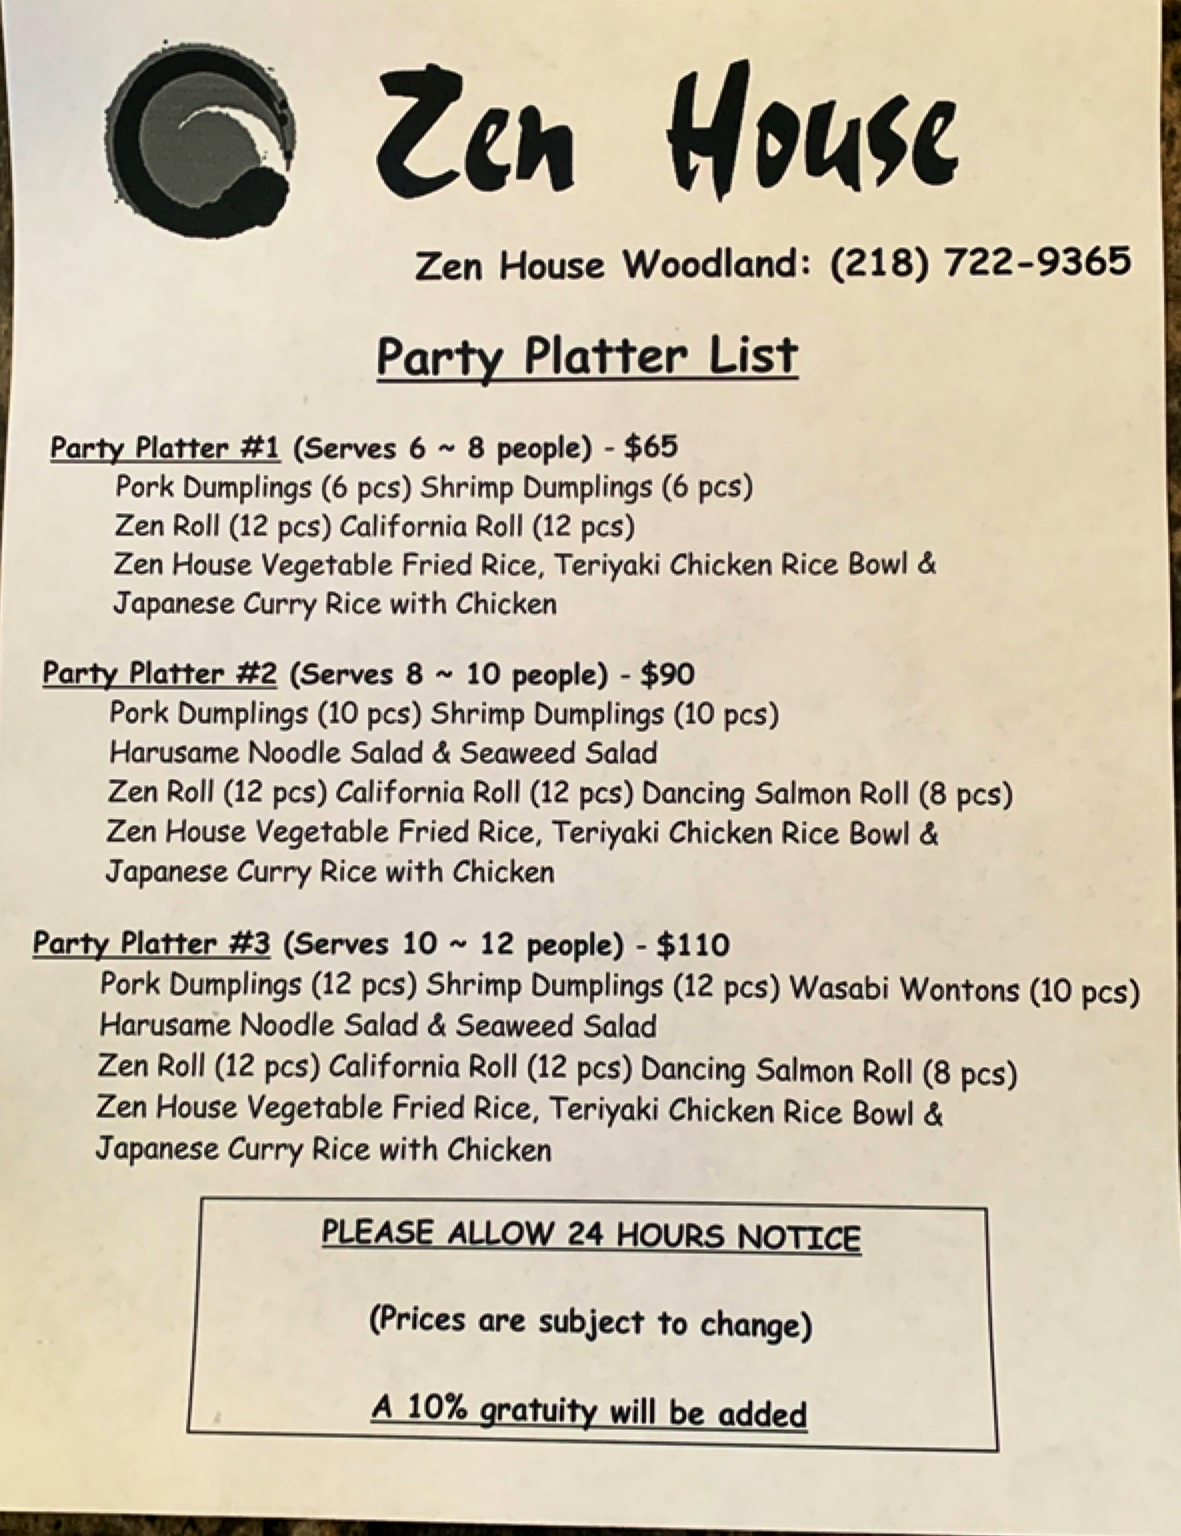 Zen House
Zen House Woodland: (218) 722-9365
Party Platter List
Party Platter #1 (Serves 6 ~ 8 people) - $65
Pork Dumplings (6 pcs) Shrimp Dumplings (6 pcs)
Zen Roll (12 pcs) California Roll (12 pcs)
Zen House Vegetable Fried Rice, Teriyaki Chicken Rice Bowl &
Japanese Curry Rice with Chicken
Party Platter #2 (Serves 8 ~ 10 people) - $90
Pork Dumplings (10 pcs) Shrimp Dumplings (10 pcs)
Harusame Noodle Salad & Seaweed Salad
Zen Roll (12 pcs) California Roll (12 pcs) Dancing Salmon Roll (8 pcs)
Zen House Vegetable Fried Rice, Teriyaki Chicken Rice Bowl &
Japanese Curry Rice with Chicken
Party Platter #3 (Serves 10 ~ 12 people) - $110
Pork Dumplings (12 pcs) Shrimp Dumplings (12 pcs) Wasabi Wontons (10 pcs)
Harusame Noodle Salad & Seaweed Salad
Zen Roll (12 pcs) California Roll (12 pcs) Dancing Salmon Roll (8 pcs)
Zen House Vegetable Fried Rice, Teriyaki Chicken Rice Bowl &
Japanese Curry Rice with Chicken
PLEASE ALLOW 24 HOURS NOTICE
(Prices are subject to change)
A 10% gratuity will be added